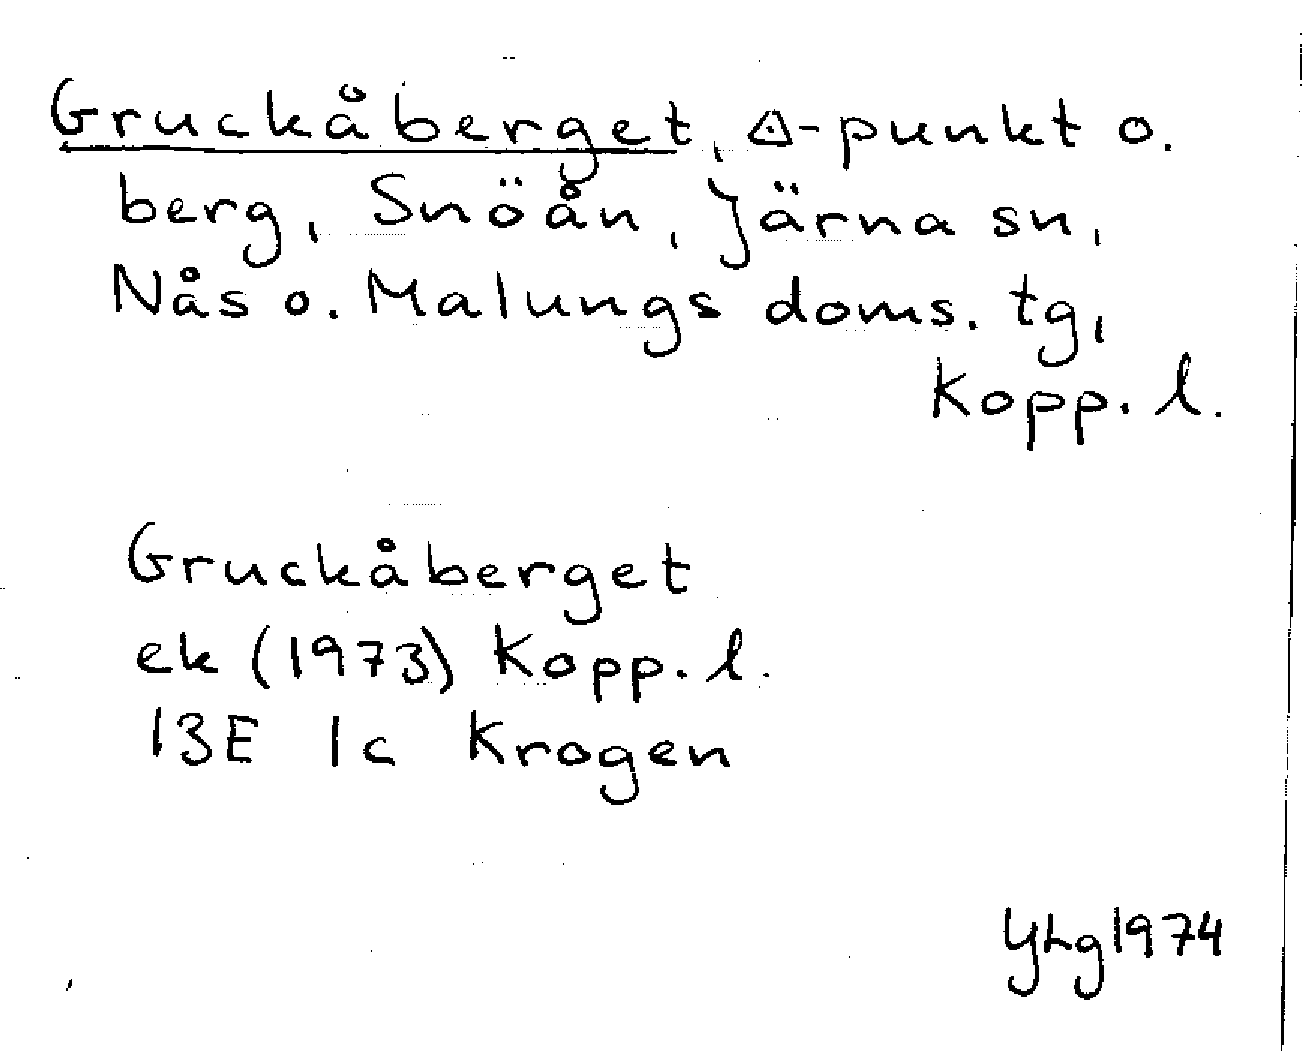 Gruckåberget, △-punkt o.
berg, Snöån, Järna sn,
Nås o. Malungs doms. tg,
Kopp. l.
Gruckåberget
ek (1973) Kopp. l.
13E 1c Krogen
YLg 1974